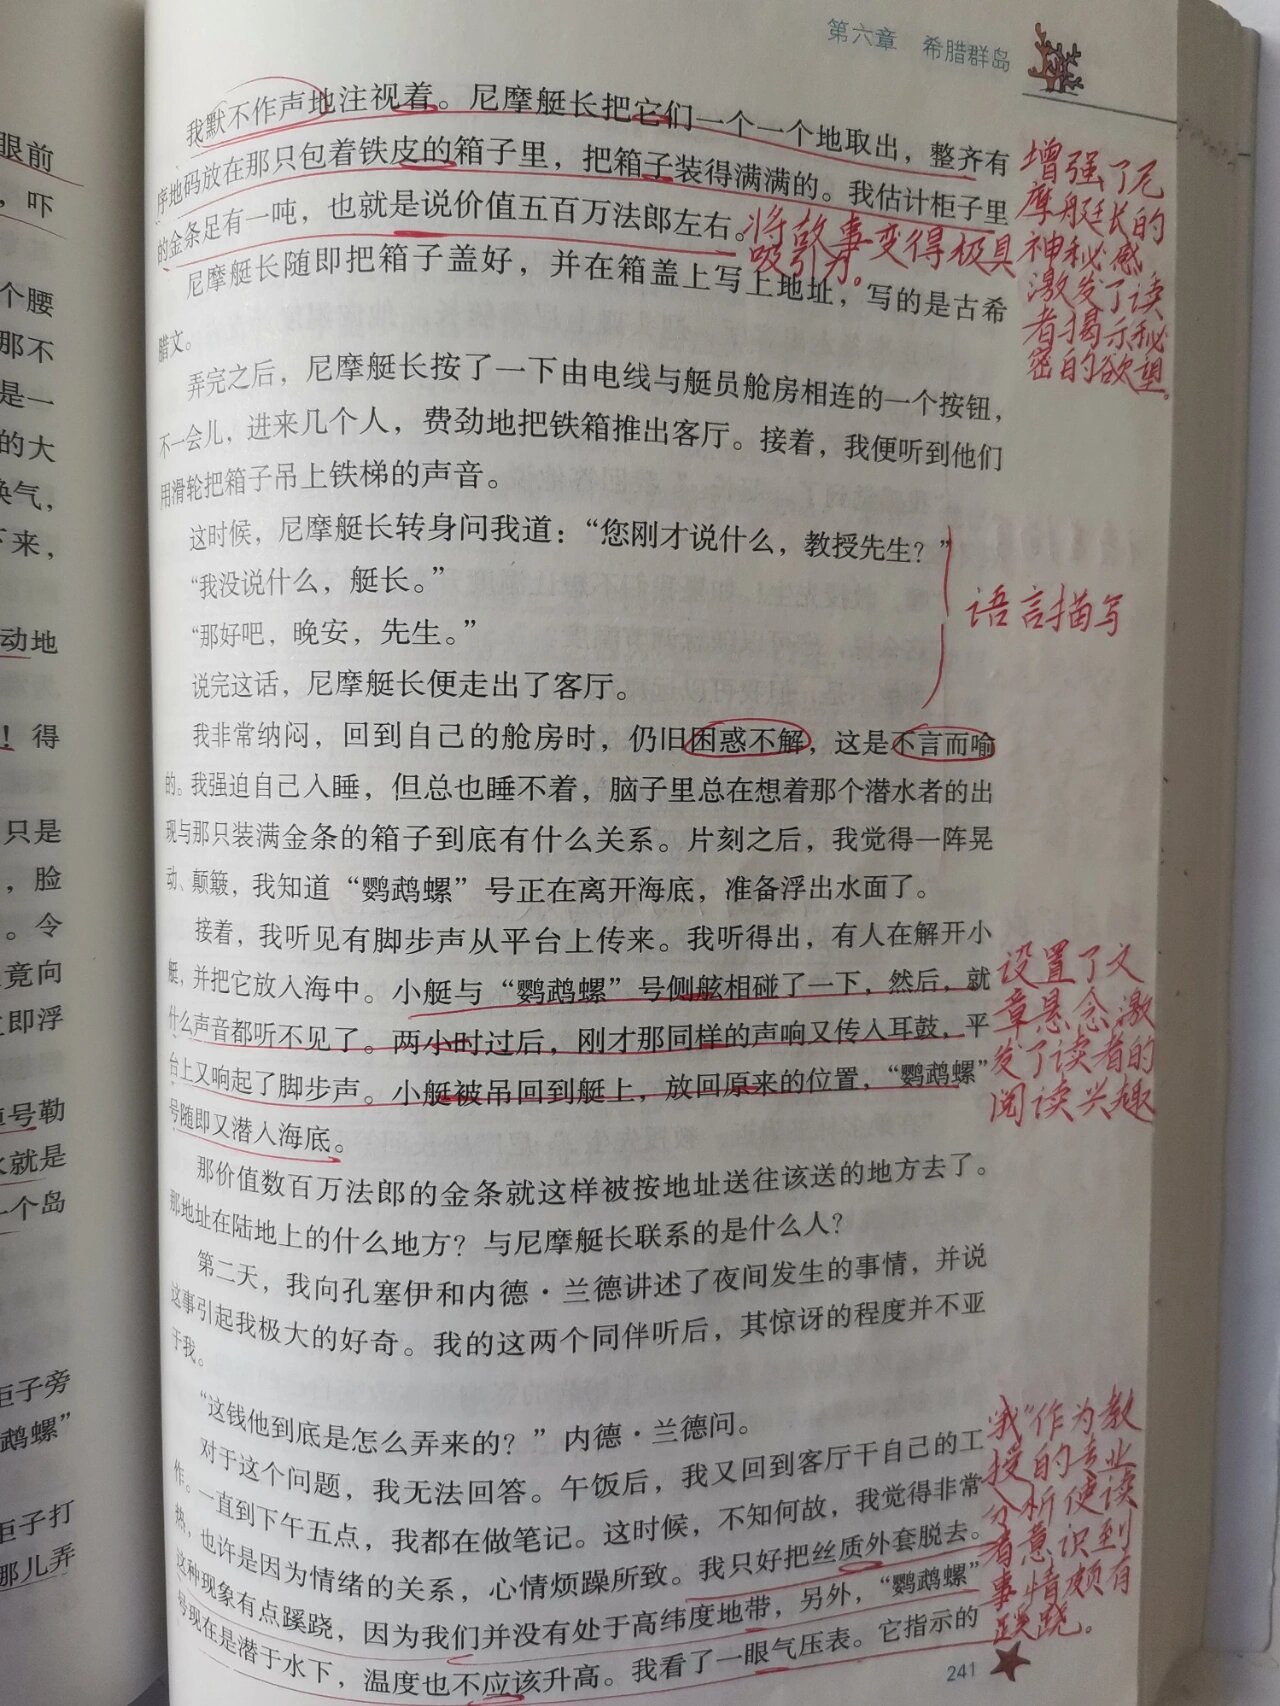 第六章 希腊群岛
我默不作声地注视着。尼摩艇长把它们一个一个地取出，整齐有
序地码放在那只包着铁皮的箱子里，把箱子装得满满的。我估计柜子里
的金条足有一吨，也就是说价值五百万法郎左右。
将故事变得极具
吸引力。
增强了尼
摩艇长的
神秘感
激发了读
者揭示秘
密的欲望。
尼摩艇长随即把箱子盖好，并在箱盖上写上地址，写的是古希
腊文。
弄完之后，尼摩艇长按了一下由电线与艇员舱房相连的一个按钮，
不一会儿，进来几个人，费劲地把铁箱推出客厅。接着，我便听到他们
用滑轮把箱子吊上铁梯的声音。
这时候，尼摩艇长转身问我道：“您刚才说什么，教授先生？”
“我没说什么，艇长。”
“那好吧，晚安，先生。”
说完这话，尼摩艇长便走出了客厅。
语言描写
我非常纳闷，回到自己的舱房时，仍旧困惑不解，这是不言而喻
的。我强迫自己入睡，但总也睡不着，脑子里总在想着那个潜水者的出
现与那只装满金条的箱子到底有什么关系。片刻之后，我觉得一阵晃
动、颠簸，我知道“鹦鹉螺”号正在离开海底，准备浮出水面了。
接着，我听见有脚步声从平台上传来。我听得出，有人在解开小
艇，并把它放入海中。小艇与“鹦鹉螺”号侧舷相碰了一下，然后，就
什么声音都听不见了。两小时过后，刚才那同样的声响又传入耳鼓，平
台上又响起了脚步声。小艇被吊回到艇上，放回原来的位置，“鹦鹉螺”
号随即又潜入海底。
设置了文
章悬念，激
发了读者的
阅读兴趣
那价值数百万法郎的金条就这样被按地址送往该送的地方去了。
那地址在陆地上的什么地方？与尼摩艇长联系的是什么人？
第二天，我向孔塞伊和内德·兰德讲述了夜间发生的事情，并说
这事引起我极大的好奇。我的这两个同伴听后，其惊讶的程度并不亚
于我。
“这钱他到底是怎么弄来的？”内德·兰德问。
对于这个问题，我无法回答。午饭后，我又回到客厅干自己的工
作。一直到下午五点，我都在做笔记。这时候，不知何故，我觉得非常
热，也许是因为情绪的关系，心情烦躁所致。我只好把丝质外套脱去。
这种现象有点蹊跷，因为我们并没有处于高纬度地带，另外，“鹦鹉螺”
号现在是潜于水下，温度也不应该升高。我看了一眼气压表。它指示的
“我”作为教
授的专业
分析使读
者意识到
事情颇有
蹊跷。
241
眼前
，吓
个腰
那不
是一
的大
换气，
下来，
动地
！得
只是
，脸
。令
竟向
立即浮
号勒
就是
个岛
柜子旁
鹉螺”
柜子打
那儿弄